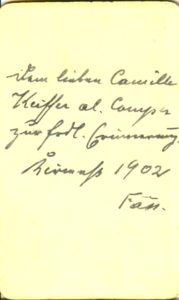 Dem lieben Camille
Keiffer al. Comps
zur frdl. Erinnerung.
Kirmeß 1902